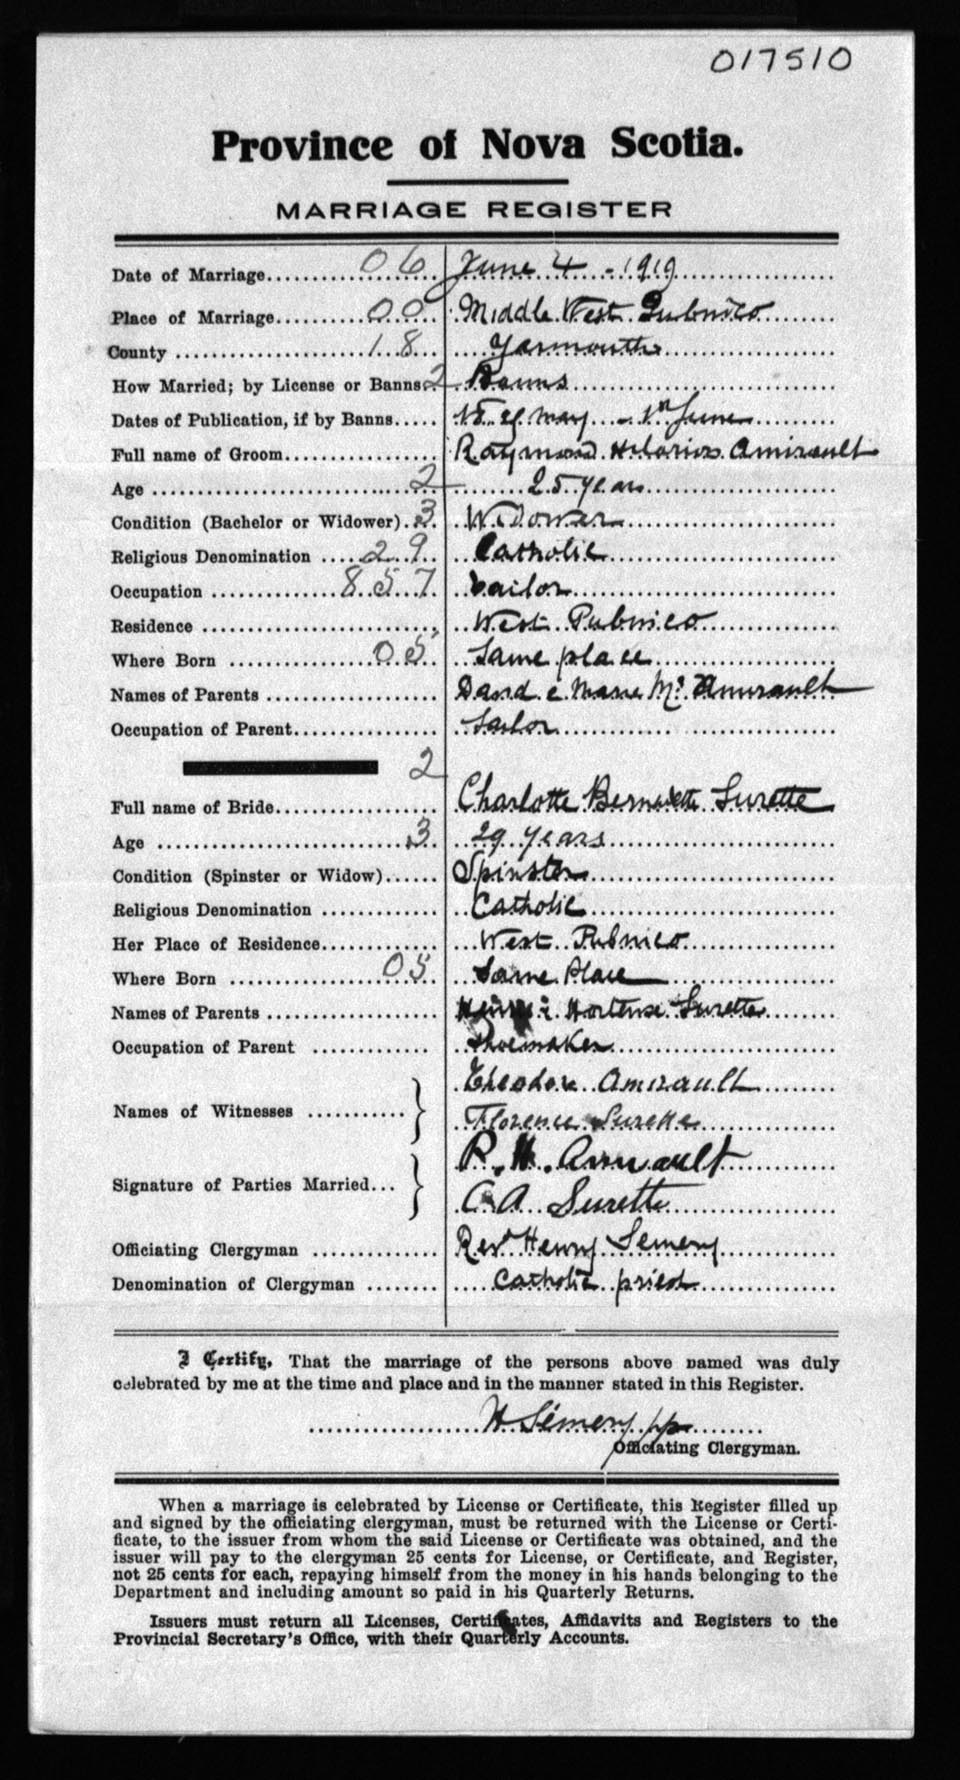 017510
Province of Nova Scotia.
MARRIAGE REGISTER
Date of Marriage 06 June 4 - 1919
Place of Marriage 00 Middle West Pubnico
County 18 Yarmouth
How Married; by License or Banns 2 Banns
Dates of Publication, if by Banns May - 1st June
Full name of Groom Raymond Hilarion Amirault
Age 2 25 years
Condition (Bachelor or Widower) 3 Widower
Religious Denomination 29 Catholic
Occupation 857 Sailor
Residence West Pubnico
Where Born 05 Same place
Names of Parents David & Marie Amirault
Occupation of Parent Sailor
2
Full name of Bride Charlotte Bernadette Surette
Age 3 29 years
Condition (Spinster or Widow) Spinster
Religious Denomination Catholic
Her Place of Residence West Pubnico
Where Born 05 Same Place
Names of Parents Hortense Surette
Occupation of Parent Shoemaker
Names of Witnesses Theodore Amirault
Florence Surette
Signature of Parties Married R. H. Amirault
C A Surette
Officiating Clergyman Revd Henry Semery
Denomination of Clergyman Catholic priest
I Certify, That the marriage of the persons above named was duly
celebrated by me at the time and place and in the manner stated in this Register.
H Sémery pp
Officiating Clergyman.
When a marriage is celebrated by License or Certificate, this Register filled up
and signed by the officiating clergyman, must be returned with the License or Certi-
ficate, to the issuer from whom the said License or Certificate was obtained, and the
issuer will pay to the clergyman 25 cents for License, or Certificate, and Register,
not 25 cents for each, repaying himself from the money in his hands belonging to the
Department and including amount so paid in his Quarterly Returns.
Issuers must return all Licenses, Certificates, Affidavits and Registers to the
Provincial Secretary's Office, with their Quarterly Accounts.